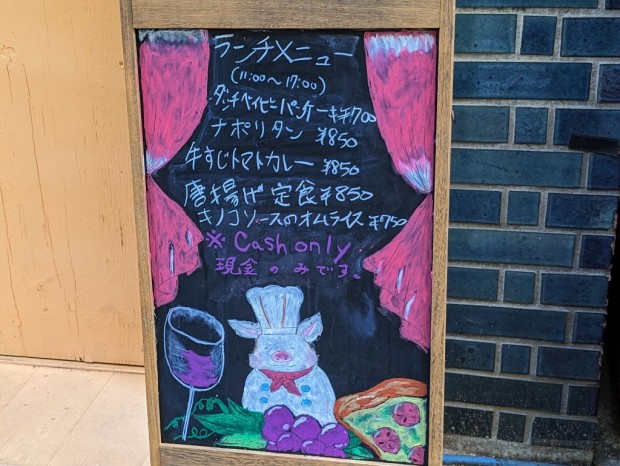 ランチメニュー
(11:00～17:00)
ダッチベイビーパンケーキ¥700
ナポリタン ¥850
牛すじトマトカレー ¥850
唐揚げ定食¥850
キノコソースのオムライス ¥750
※ Cash only
現金のみです。